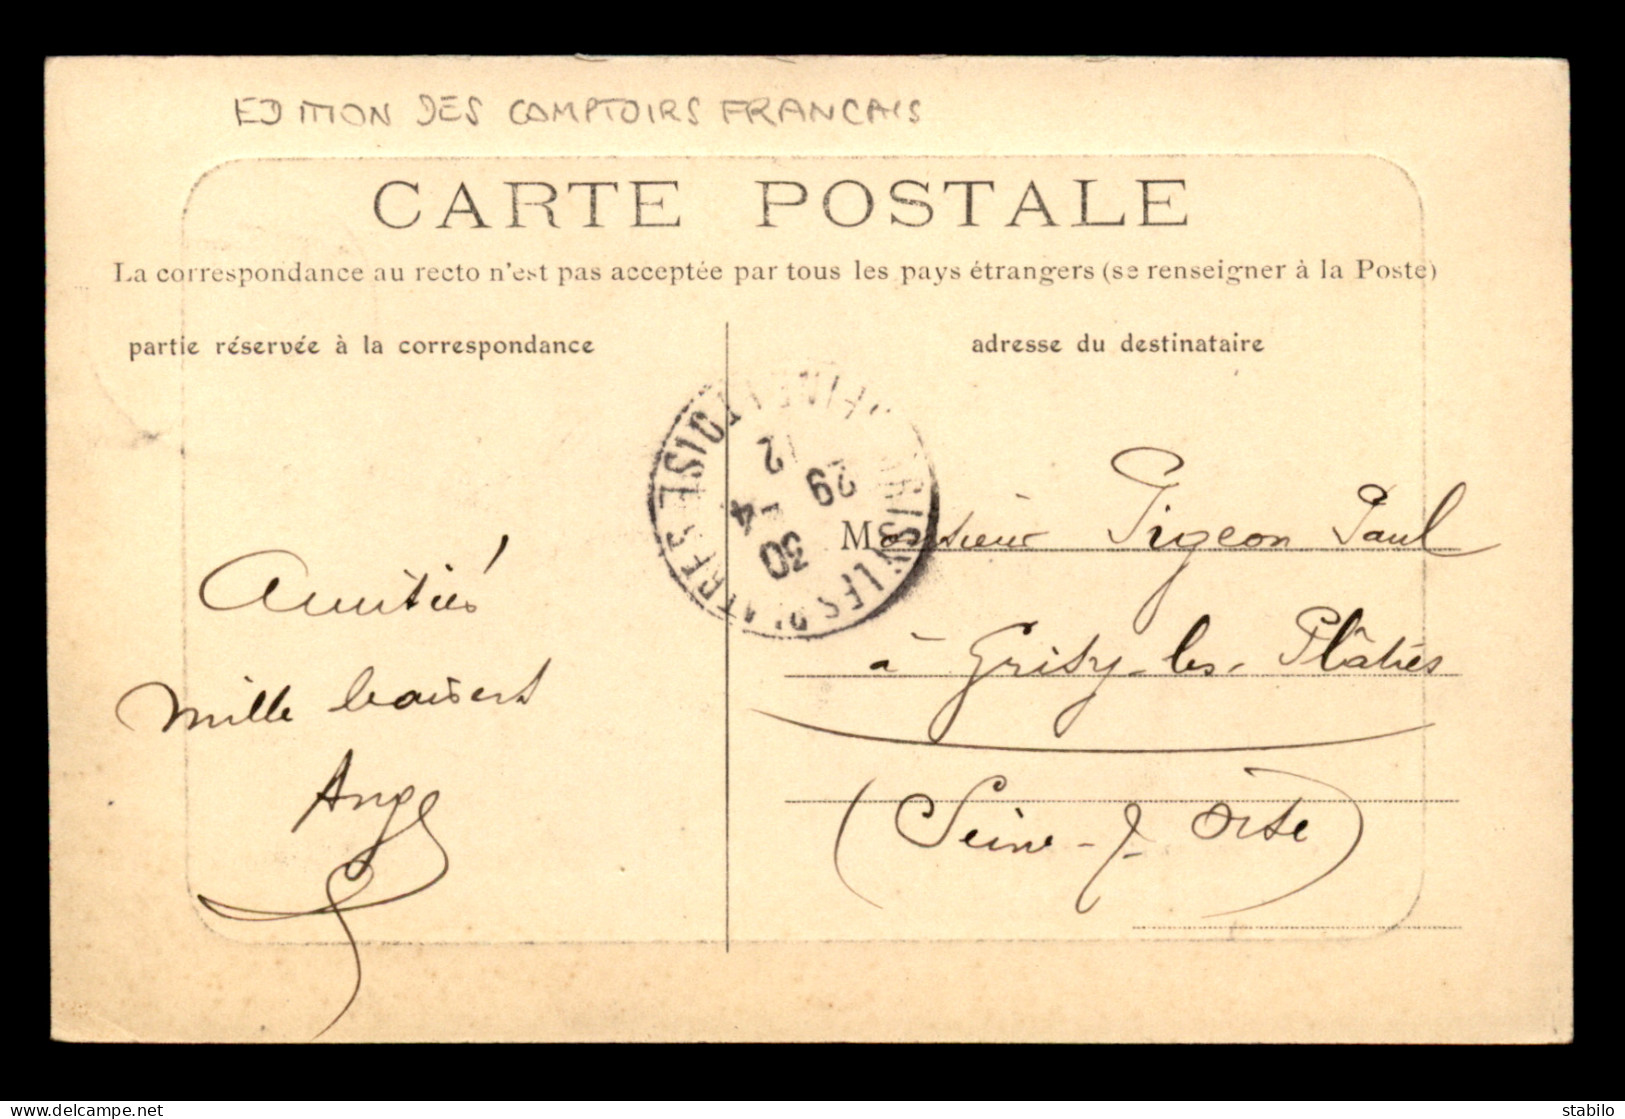 EDITION DES COMPTOIRS FRANCAIS
CARTE POSTALE
La correspondance au recto n'est pas acceptée par tous les pays étrangers (se renseigner à la Poste)
partie réservée à la correspondance
adresse du destinataire
GRISY LES PLATRES
30 - 4
29
2
Amitiés
mille baisers
Ange
Monsieur Pigeon Paul
à Grisy-les-Plâtres
(Seine-&-Oise)
delcampe.net
stabilo